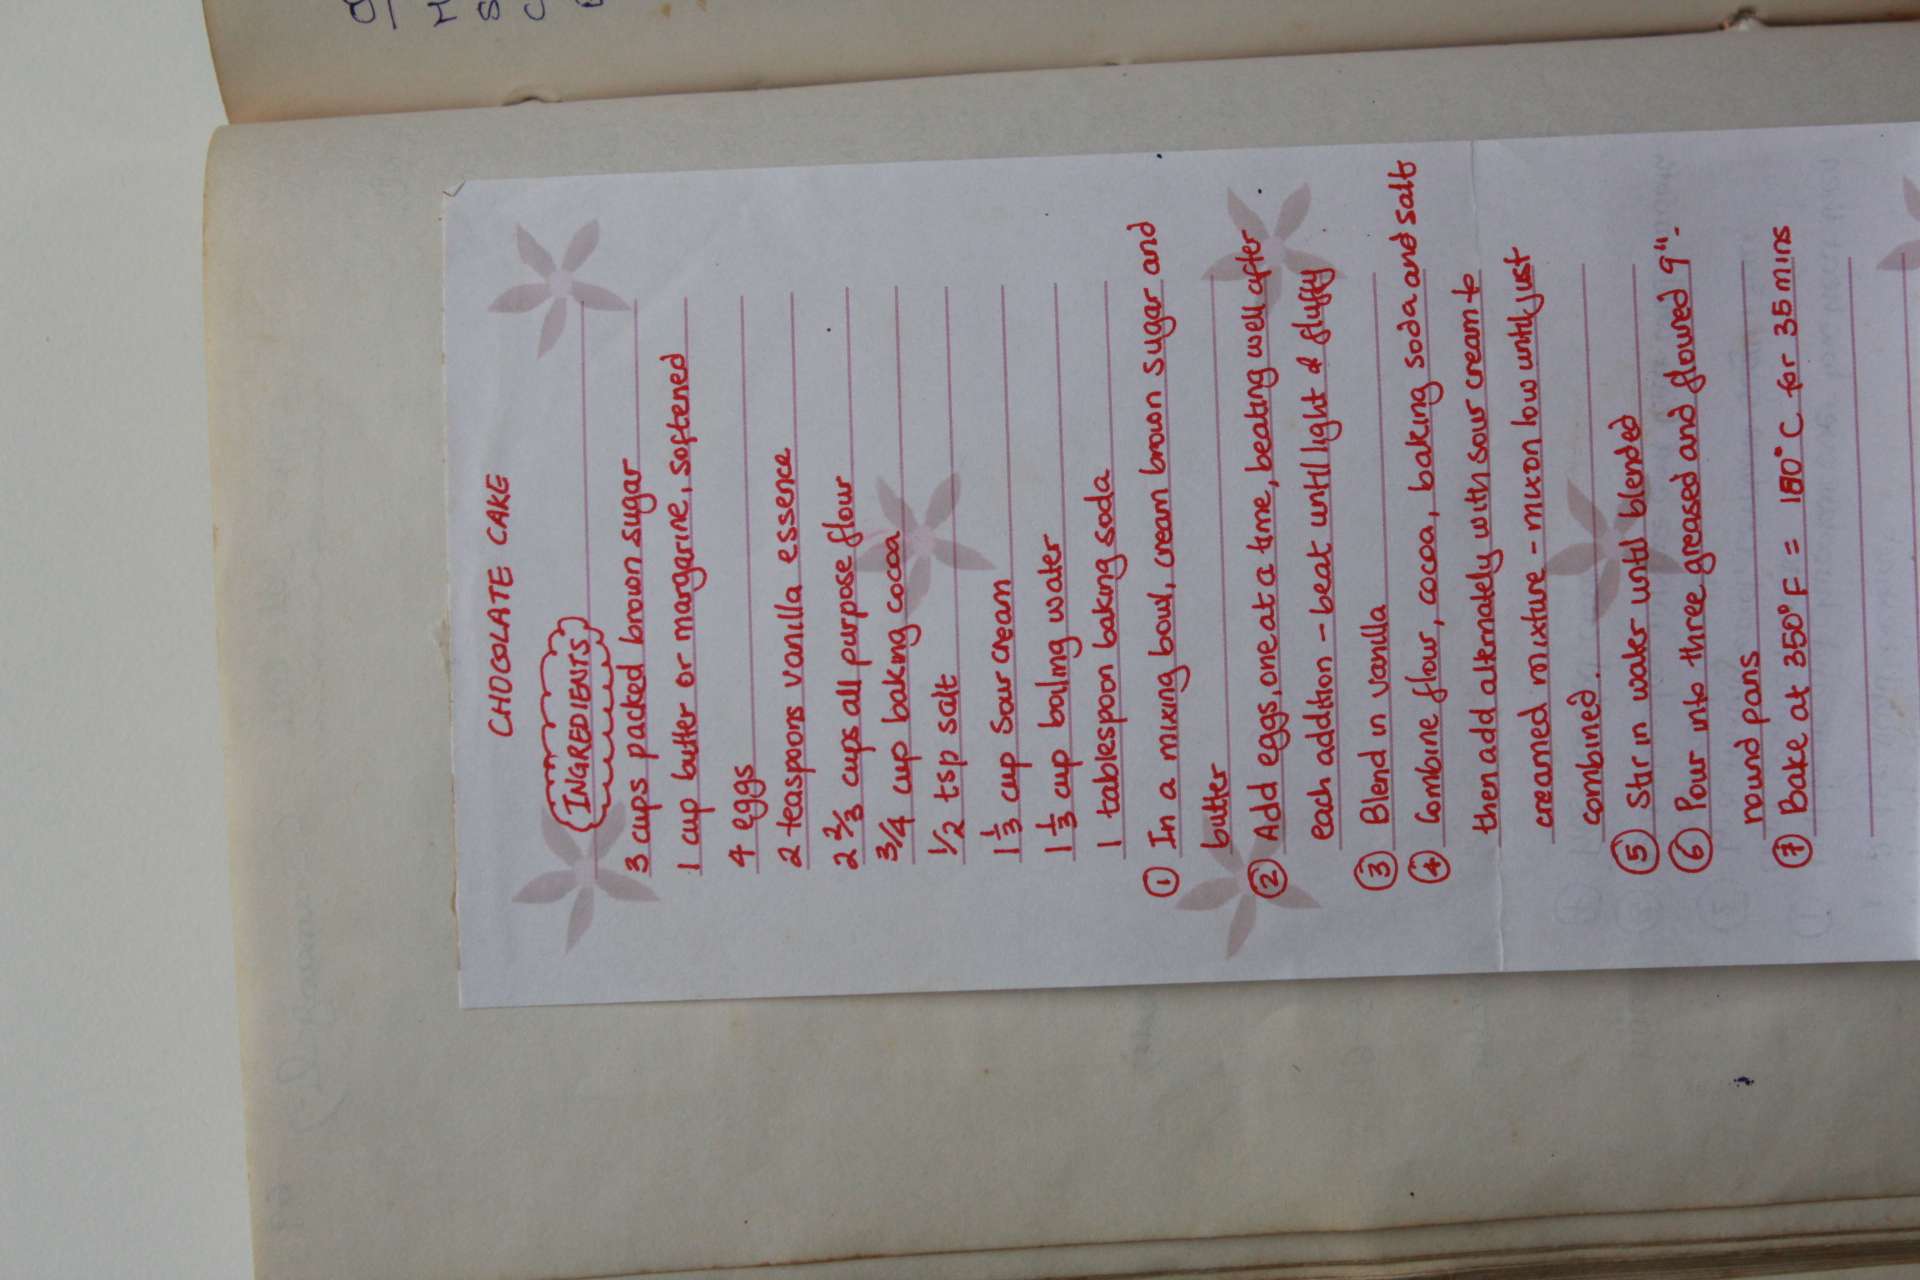 CHOCOLATE CAKE
INGREDIENTS
3 cups packed brown sugar
1 cup butter or margarine, softened
4 eggs
2 teaspoons vanilla essence
2 2/3 cups all purpose flour
3/4 cup baking cocoa
1/2 tsp salt
1 1/3 cup sour cream
1 1/3 cup boiling water
1 tablespoon baking soda
① In a mixing bowl, cream brown sugar and
butter
② Add eggs, one at a time, beating well after
each addition - beat until light & fluffy
③ Blend in vanilla
④ Combine flour, cocoa, baking soda and salt
then add alternately with sour cream to
creamed mixture - mix on low until just
combined.
⑤ Stir in water until blended
⑥ Pour into three greased and floured 9"-
round pans
⑦ Bake at 350°F = 180°C for 35 mins